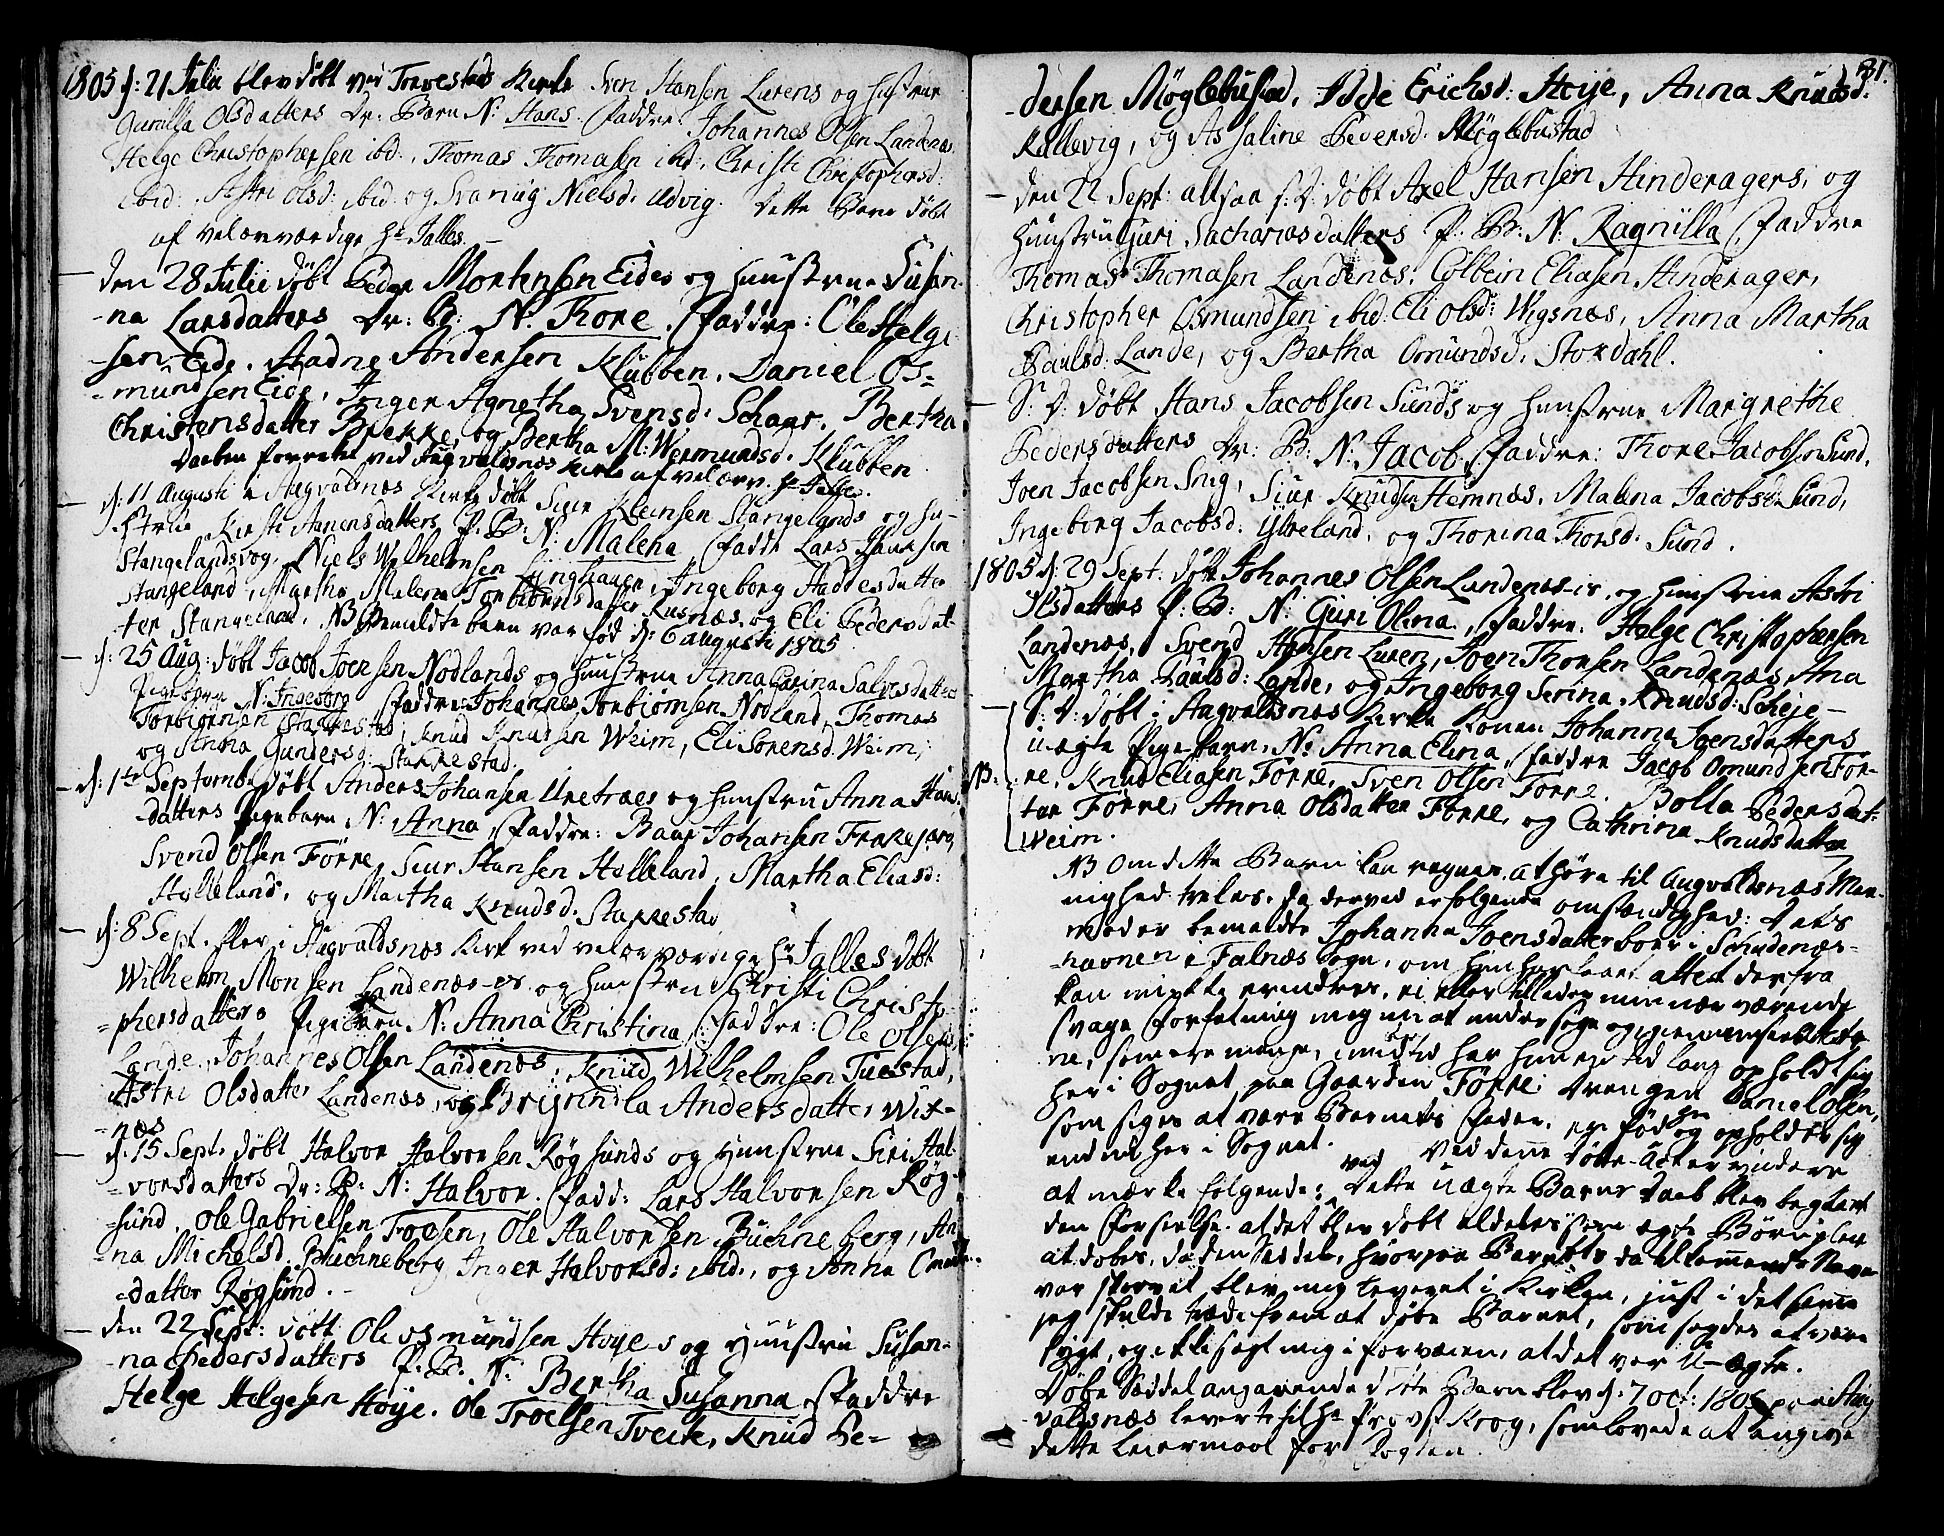 1805 d: 21 Julii blev døbt ved Torvestads Kirke Sven Hansen Lurens og hustrue
Gunilla Olsdatters Dr: Barn N: Hans. Faddre: Johannes Olsen Landenæs
Helge Christophersen ibd:, Thomas Thomasen ibd:, Christi Christophersd:
ibid: Astri Olsd: ibid: og Svanug Nielsd: Udvig. Dette Barn døbt
af velærværdige Hr Jalles.
den 28 Julii døbt Peder Mortensen Eides og hustrue Susan-
-na Larsdatters Dr: B: N: Thore. Faddre: Ole Helge
-sen Eide, Aadne Andersen Klubben, Daniel Os-
=mundsen Eide, Inger Agnetha Svensd: Schaar, Bertha
Christensdatter Brekke, og Bertha M: Wermundsd: Klubben
Daaben forrettet ved Augvaldsnæs Kirke af velærv. Hr Jalles.
d: 11 Augusti i Augvaldnæs Kirke døbt Siur Stangelands og hu-
-strue Kirsti Hanensdatters P: B: N: Malena, Faddre Lars
Stangelandsvog, Niels Wilhelmsen Linghauen, Ingeborg Haddesdatter
Stangeland, Martha Malena Torbiørnsdatter Kusnæs, og Eli Pedersdat-
-ter Stangeland. NB Bemeldte barn var fød d: 6 augusti 1805
d: 25 Aug: døbt Jacob Joensen Nodlands og hustrue Anna Carina Salvesdatters
Pigebarn N: Ingeborg Faddre Johannes Torbiørnsen Nodland, Thomas
Torbiørnsen Stakkestad, Knud Knudsen Weim, Eli Sørensd: Weim,
og Anna Gundersd: Stakkestad.
d: 1te Septembr døbt Anders Johansen Uretræs og hustru Anna Hans-
-datters Pigebarn N: Anna, Faddre: Baar Johansen
Svend Olsen Førre, Siur Hansen Helleland, Martha Eliasd:
Helleland, og Martha Knudsd: Stakkestad
d: 8 Sept. blev i Augvaldsnæs Kirke ved velærværdige Hr Jalles døbt
Wilhelm Monsen Landenæs-es og hustrue Christi Christo-
=phersdatters Pigebarn N: Anna Christina, Faddre: Ole Olsen
Lande, Johannes Olsen Landenæs, Knud Wilhelmsen Tuestad,
Astri Olsdatter Landenæs, og Brynnilda Andersdatter Wix-
-næs
d: 15 Sept. døbt Halvor Halvorsen Røgsunds og hustrue Siri Hal-
-vorsdatters Dr: B: N: Halvor. Fadd: Lars Halvorsen Røg-
-sund, Ole Gabrielsen Froesen, Ole Halvorsen Buchneberg, An-
-na Michelsd: Buchneberg, Inger Halvorsd: ibid:, og Anna
=datter Røgsund.
den 22 Sept: døbt Ole Osmundsen Høyes og hustrue Susan-
-na Pedersdatters P: B: N: Bertha Susanna, Faddre
Helge Helgesen Høye, Ole Troelsen Tveite, Knud Pe=
81.
-dersen Møglebustad, Adde Erichsd: Høye, Anna Knudsd:
Kallevig, og Assaline Pedersd: Møglebustad
den 22 Sept: altsaa s: D: døbt Axel Hansen Hinderagers, og
hustru Guri Sachariasdatters P: B: N: Ragnilla, Faddre
Thomas Thomasen Landenæs, Colbein Eliasen Hinderager,
Christopher Osmundsen ibid: Eli Olsd: Wigsnæs, Anna Martha
Paulsd: Lande, og Bertha Omundsd: Stordahl.
S: D: døbt Hans Jacobsen Sunds og hustrue Margrethe
Pedersdatters Dr: B: N: Jacob, Faddre: Thore Jacobsen Sund,
Joen Jacobsen Snig, Siur Knudsen Hemnæs, Malena Jacobsd: Sund,
Ingeborg Jacobsd: Ytreland, og Thorina Thorsd: Sund.
1805 d: 29 Sept: døbt Johannes Olsen Landenæs-es, og hustrue Astri
Olsdatters P: B: N: Guri Olena, Faddre: Helge Christophersen
Landenæs, Svend Hansen Luren, Joen Thorsen Landenæs, Ana
Martha Paulsd: Lande, og Ingeborg Serina Knudsd: Scheje
S: D: døbt i Augvaldsnæs Kirke Konen Johanna Joensdatters
uægte Pigebarn, N: Anna Elina, Faddre Jacob Omundsen Før-
NB: re, Knud Eliasen Førre, Sven Olsen Førre, Bolla Pedersdat-
ter Førre, Anna Olsdatter Førre, og Cathrina Knudsdatter
Weim.
NB Om dette Barn kan regnes at høre til Augvaldsnæs Me-
nighed tvivles, da derved er følgende omstændighed: Dets
moder bemeldte Johanna Joensdatter boer i Schudenæs-
-havnen i Falnæs Sogn, om hun har havt attest derfra
kan mig ikke erindres, ei eller tillader min nærværende
svage Forfatning mig nu at undersøge og igiennemsee
ne, som ere mange, imidlertid har hun en tid lang opholdt sig
her i Sognet paa Gaarden Førre; Drengen Daniel Olsen,
som siges at være Barnets Fader, er fød og opholder sig
endnu her i Sognet. Ved denne døbe-Acte er videre
at mærke følgende: Ved dette uægte Barns Daab blev begaaet
den Forseelse at det blev døbt aldeles som ægte Børn plei
at døbes, da den Seddel, hvorpaa Barnets da allemeenste Navn
var skrevet blev mig leveret i Kirken, just i det samme
jeg skulde træde frem at døbe Barnet, som sagdes at være
sygt, og ikke sagt mig i forveien, at det var U-ægte.
Døbe Seddel angaaende dette Barn blev d: 7 oct: 1805 paa Aug
valdsnæs leveret til Hr Provst Krog, som lovede at angive
dette Leiermaal for Fogden.